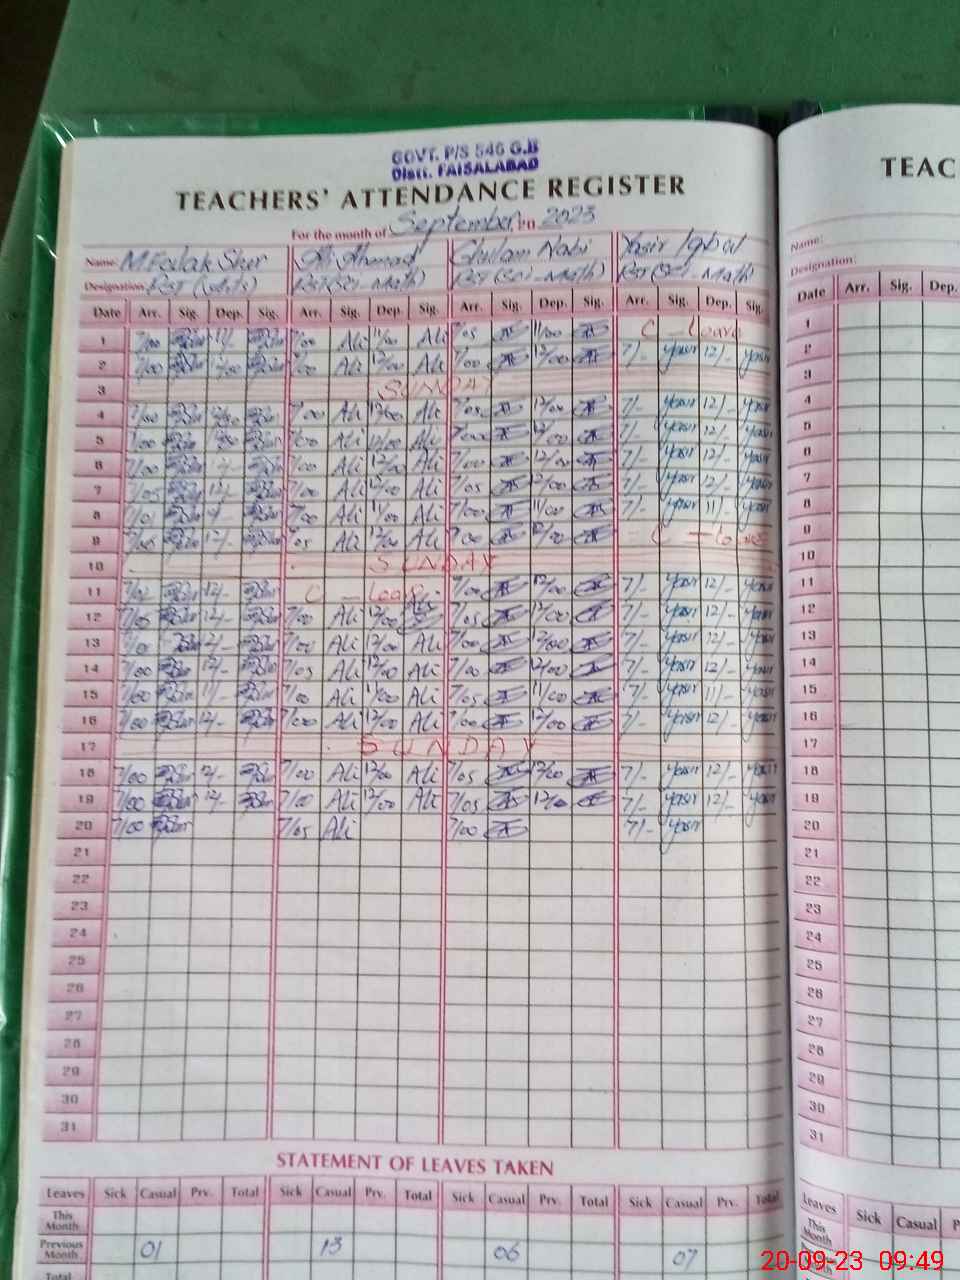 GOVT. P/S 546 G.B
Distt. FAISALABAD
TEACHERS' ATTENDANCE REGISTER
TEAC
For the month of September, 20 2023
Name: M.Falak Sher Ali Ahmad Ghulam Nabi Yasir Iqbal
Name:
Designation: PST (Arts) PST (Sci-Math) PST (Sci-Math) PST (Sci-Math)
Designation:
Date Arr. Sig. Dep. Sig. Arr. Sig. Dep. Sig. Arr. Sig. Dep. Sig. Arr. Sig. Dep. Sig.
Date Arr. Sig. Dep.
1 7/00 11/- 7/00 Ali 11/00 Ali 7/05 11/00 C - Leave
2 7/00 12/00 7/00 Ali 12/00 Ali 7/00 12/00 7/- Yasir 12/- Yasir
3 SUNDAY
4 7/00 12/00 7/00 Ali 12/00 Ali 7/05 12/00 7/- Yasir 12/- Yasir
5 7/00 7/00 Ali 12/00 Ali 7/00 12/00 7/- Yasir 12/- Yasir
6 7/00 12/- 7/00 Ali 12/00 Ali 7/00 12/00 7/- Yasir 12/- Yasir
7 7/05 12/- 7/00 Ali 12/00 Ali 7/05 12/00 7/- Yasir 12/- Yasir
8 7/01 7/00 Ali 11/00 Ali 7/00 11/00 7/- Yasir 11/- Yasir
9 7/05 12/- 7/05 Ali 12/00 Ali 7/00 12/00 C - Leave
10 SUNDAY
11 7/02 12/- C - Leave 7/00 12/00 7/- Yasir 12/- Yasir
12 7/05 12/- 7/00 Ali 12/00 7/05 12/00 7/- Yasir 12/- Yasir
13 7/01 12/- 7/00 Ali 12/00 Ali 7/00 12/00 7/- Yasir 12/- Yasir
14 7/00 12/- 7/05 Ali 12/00 Ali 7/00 12/00 7/- Yasir 12/- Yasir
15 7/00 11/- 7/00 Ali 11/00 Ali 7/05 11/00 7/- Yasir 11/- Yasir
16 7/00 12/- 7/00 Ali 12/00 Ali 7/00 12/00 7/- Yasir 12/- Yasir
17 SUNDAY
18 7/00 12/- 7/00 Ali 12/00 Ali 7/05 12/00 7/- Yasir 12/- Yasir
19 7/00 12/- 7/00 Ali 12/00 Ali 7/05 12/00 7/- Yasir 12/- Yasir
20 7/00 7/05 Ali 7/00 7/- Yasir
21
22
23
24
25
26
27
28
29
30
31
1
2
3
4
5
6
7
8
9
10
11
12
13
14
15
16
17
18
19
20
21
22
23
24
25
26
27
28
29
30
31
STATEMENT OF LEAVES TAKEN
Leaves Sick Casual Prv. Total Sick Casual Prv. Total Sick Casual Prv. Total Sick Casual Prv. Total
Leaves Sick Casual
This Month
This Month
Previous Month 01 13 06 07
Total
20-09-23 09:49